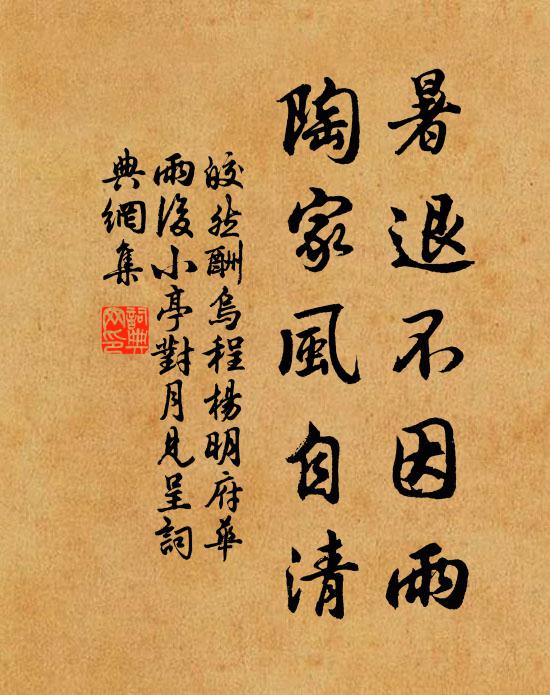 暑退不因雨
陶家風自清
皎然酬烏程楊明府華
雨後小亭對月見呈詞
典網集
詞典
网印